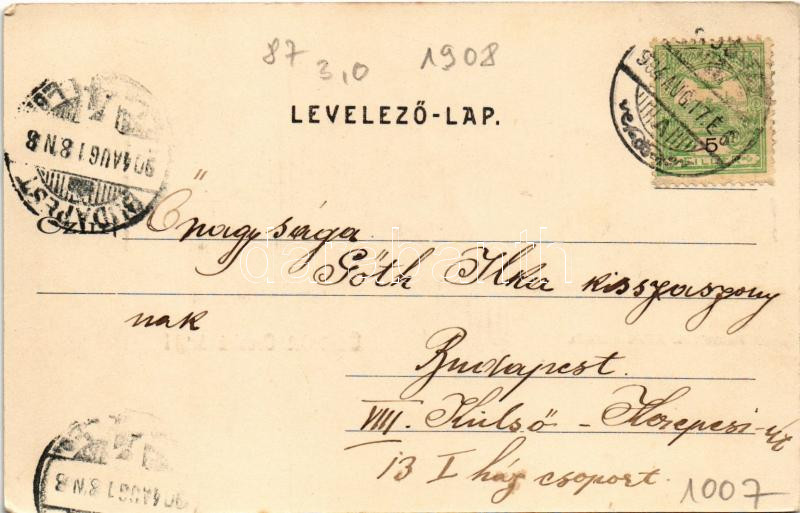 87 3,0 1908
LEVELEZŐ-LAP.
904 AUG 17 E
5
904 AUG 18 N 8
BUDAPEST
Czím
Őnagysága
Góth Ilka kisszaszony
nak
Budapest.
VIII. Külső - Kerepesi-út
13 I ház csoport.
904 AUG 18 N 8
1007
darabanth